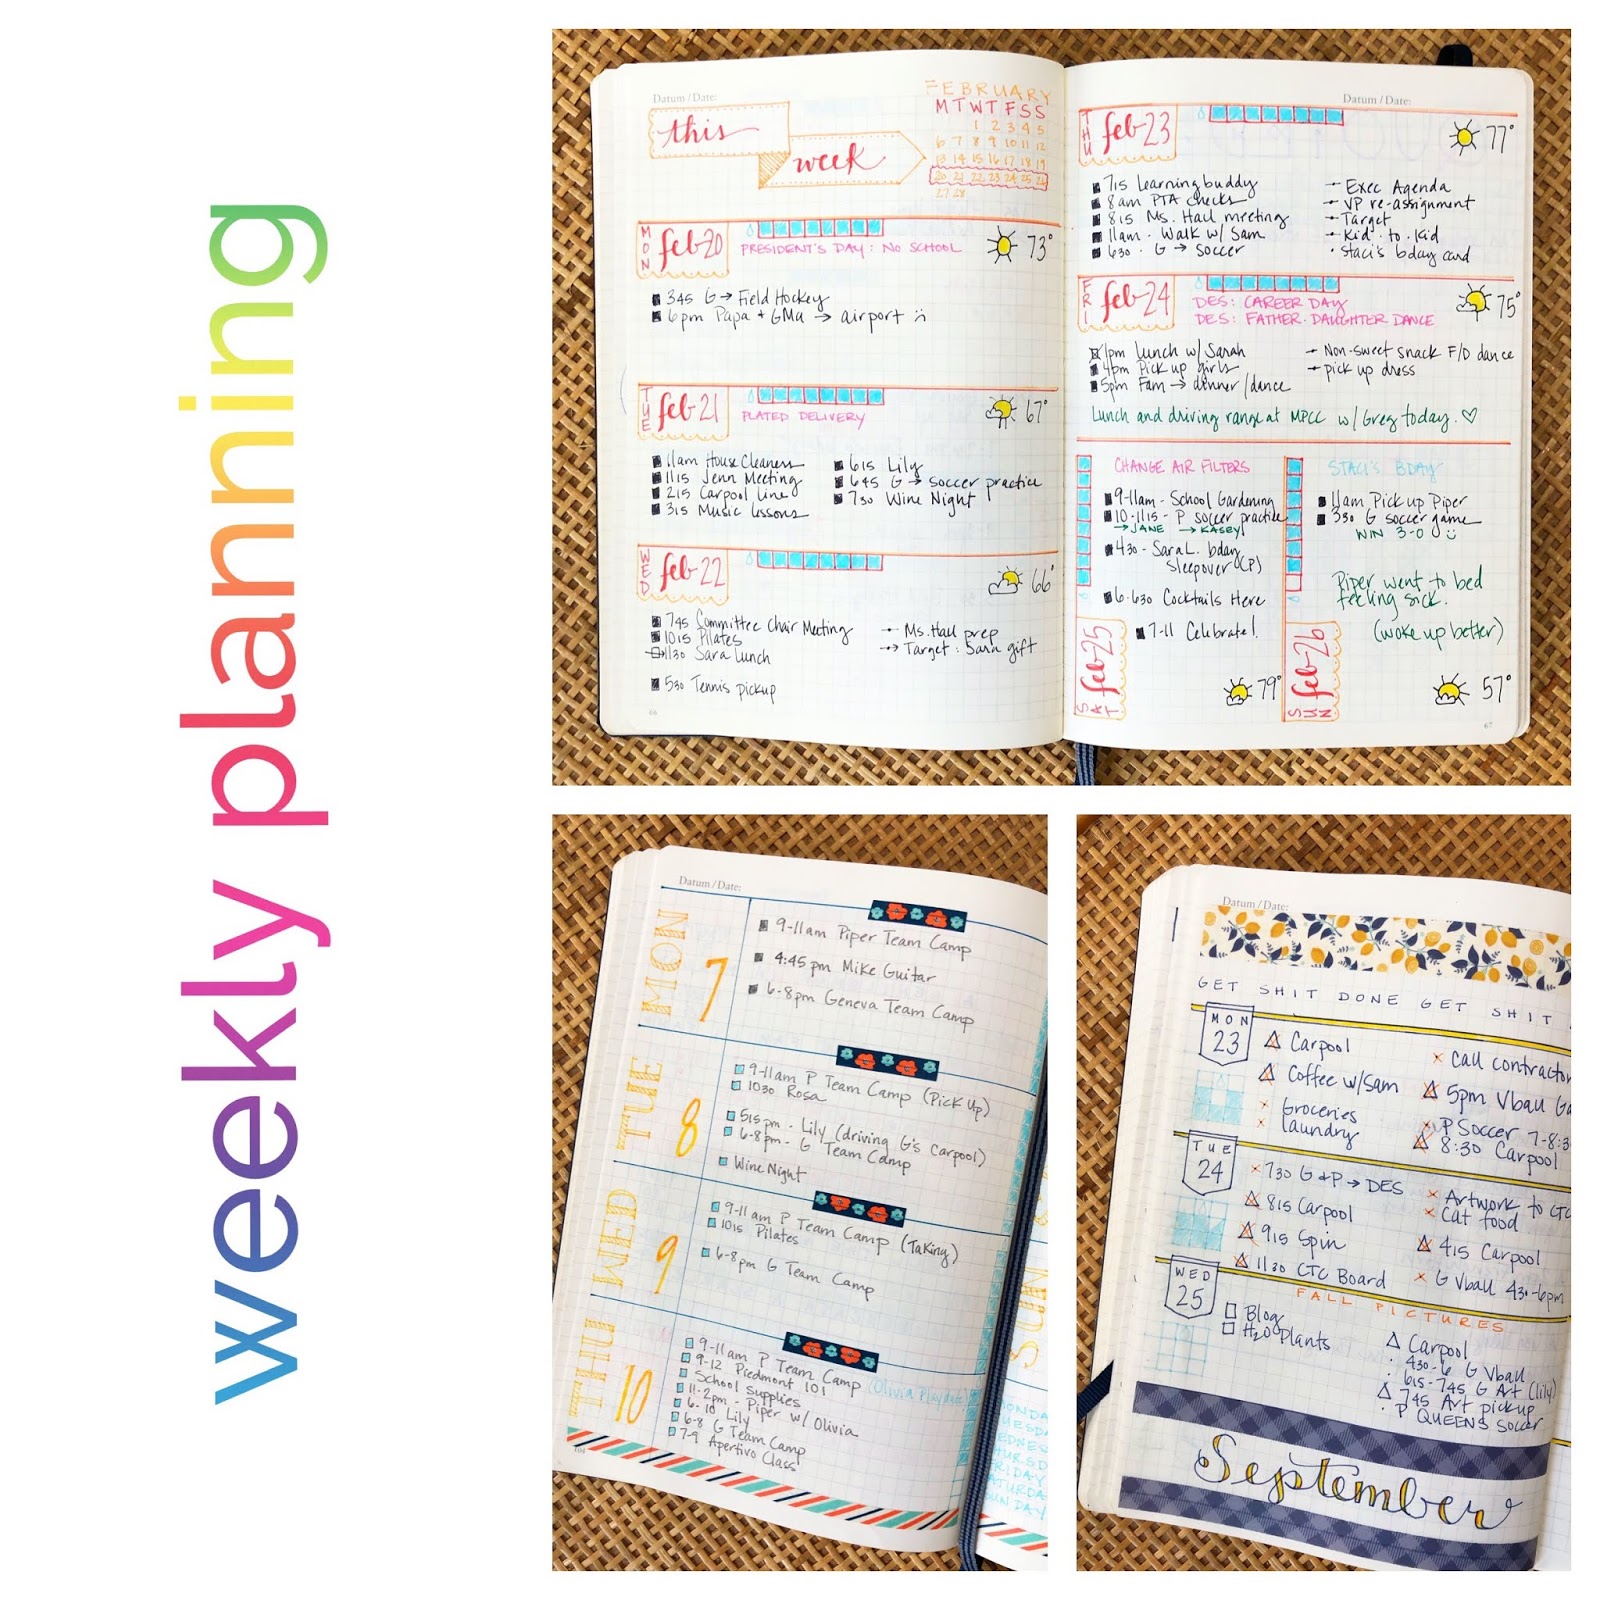 weekly planning
Datum / Date:
this
week
FEBRUARY
M T W T F S S
1 2 3 4 5
6 7 8 9 10 11 12
13 14 15 16 17 18 19
20 21 22 23 24 25 26
27 28
MON
feb-20
PRESIDENT'S DAY: NO SCHOOL
73°
345 G → Field Hockey
6pm Papa + GMa → airport :(
TUE
feb-21
PLATED DELIVERY
67°
11am House Cleaners
1115 Jenn Meeting
215 Carpool line
315 Music lessons
615 Lily
645 G → soccer practice
730 Wine Night
WED
feb-22
66°
745 Committee Chair Meeting
1015 Pilates
1130 Sara Lunch
530 Tennis pickup
Ms. Hall prep
Target: Sara gift
66
Datum / Date:
THU
feb-23
77°
715 Learning buddy
8am PTA checks
815 Ms. Hall meeting
11am · Walk w/ Sam
630 · G → soccer
Exec Agenda
VP re-assignment
Target
Kid · to · Kid
Staci's bday card
FRI
feb-24
DES: CAREER DAY
DES: FATHER-DAUGHTER DANCE
75°
1pm Lunch w/ Sarah
4pm Pick up girls
5pm Fam → dinner/dance
Non-sweet snack F/D dance
pick up dress
Lunch and driving range at MPCC w/ Greg today. ♡
CHANGE AIR FILTERS
9-11am - School Gardening
10-1115 - P soccer practice
→ JANE → KASEY
430 - Sara L. bday
sleepover (P)
6-630 Cocktails Here
7-11 Celebrate!
feb-25
SAT
79°
STACI'S BDAY
11am Pick up Piper
330 G soccer game
WIN 3-0 :)
Piper went to bed
feeling sick.
(woke up better)
feb-26
SUN
57°
67
Datum / Date:
MON
7
9-11am Piper Team Camp
4:45pm Mike Guitar
6-8pm Geneva Team Camp
TUE
8
9-11am P Team Camp (Pick Up)
1030 Rosa
515pm - Lily (driving G's carpool)
6-8pm - G Team Camp
Wine Night
WED
9
9-11am P Team Camp (Taking)
1015 Pilates
6-8pm G Team Camp
THU
10
9-11am P Team Camp (Olivia Playdate)
9-12 Piedmont 101
School Supplies
11-2pm - Piper w/ Olivia
6-10 Lily
6-8 G Team Camp
7-9 Apertivo Class
104
SUN
Datum / Date:
GET SHIT DONE GET SHIT
MON
23
Carpool
Coffee w/Sam
Groceries
laundry
call contractor
5pm Vball Ga
P Soccer 7-8:3
8:30 Carpool
TUE
24
730 G & P → DES
815 Carpool
915 Spin
1130 CTC Board
Artwork to CTC
Cat food
415 Carpool
G Vball 430-6pm
WED
25
FALL PICTURES
Blog
H2O Plants
Carpool
430-6 G Vball
615-745 G Art (lily)
745 Art pickup
P QUEENS SOCCER
September